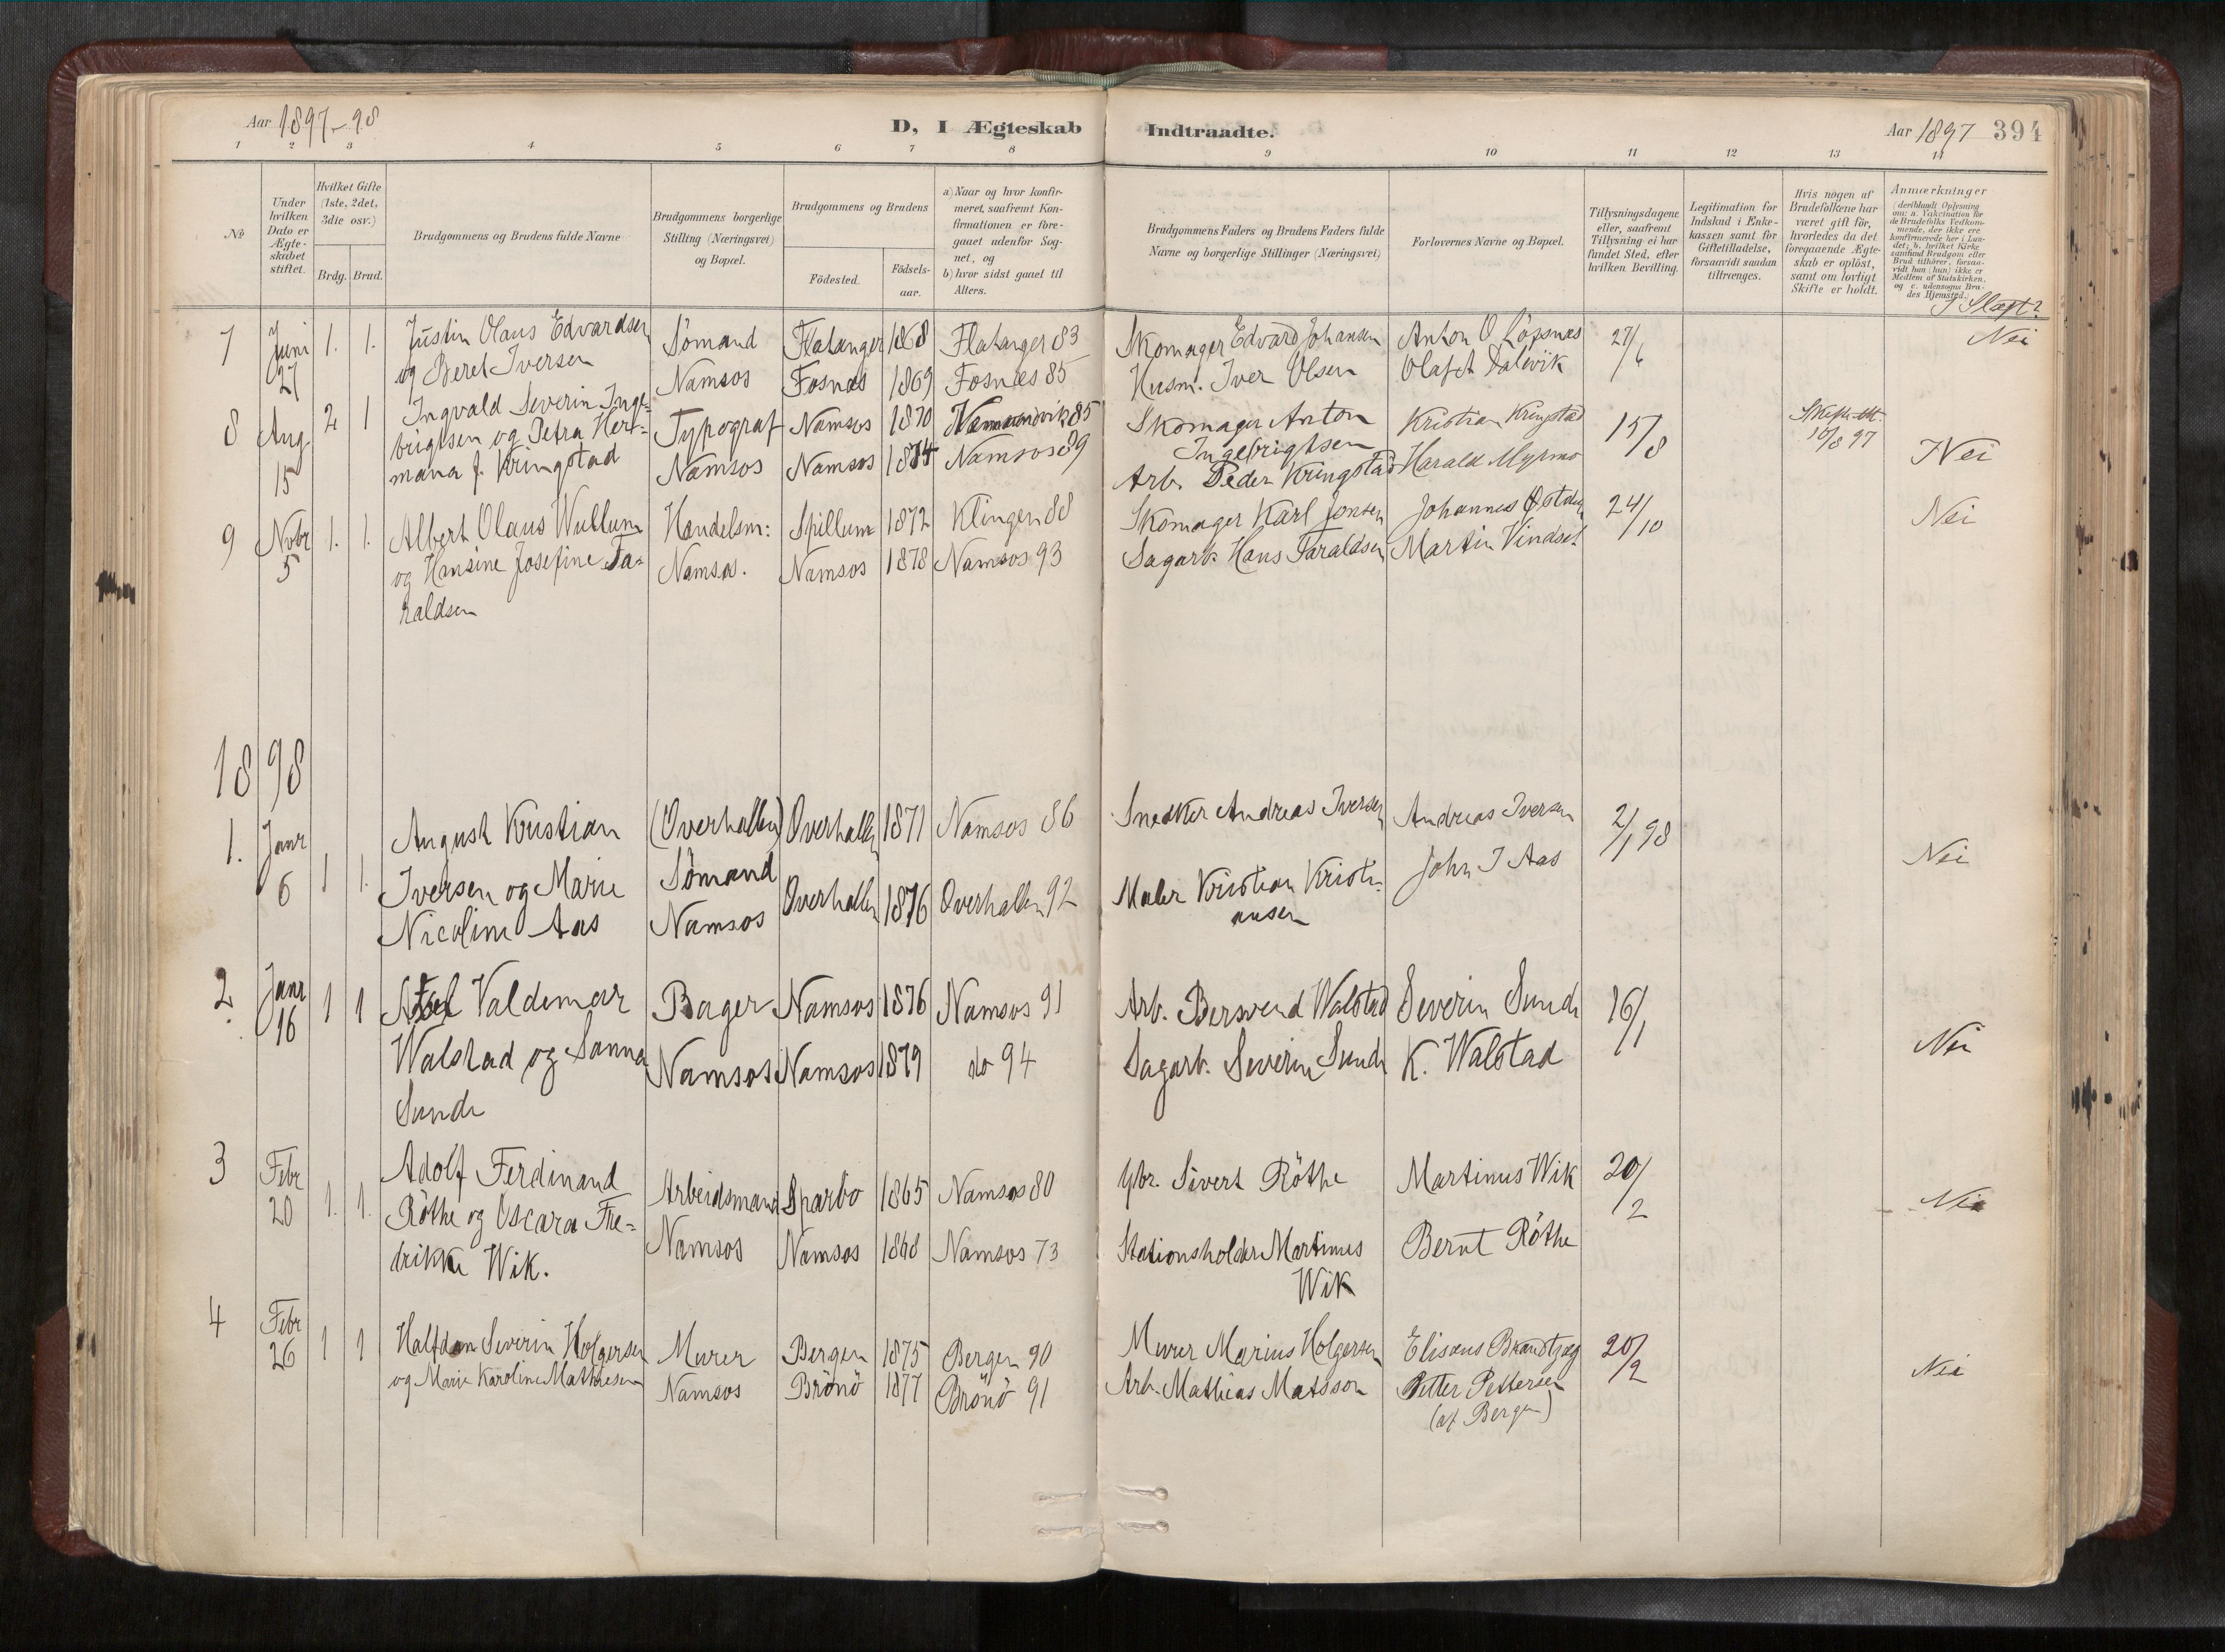 Aar 1897-98
D, I Ægteskab Indtraadte.
Aar 1897 394
1 2 3 4 5 6 7 8 9 10 11 12 13 14
No
Under hvilken Dato er Ægte-skabet stiftet.
Hvilket Gifte (1ste, 2det, 3die osv.)
Brdg. Brud.
Brudgommens og Brudens fulde Navne
Brudgommens borgerlige Stilling (Næringsvei) og Bopæl.
Brudgommens og Brudens
Födested.
Födsels-aar.
a) Naar og hvor konfir-meret, saafremt Kon-firmationen er fore-gaaet udenfor Sog-net, og
b) hvor sidst gaaet til Alters.
Brudgommens Faders og Brudens Faders fulde Navne og borgerlige Stillinger (Næringsvei)
Forlovernes Navne og Bopæl.
Tillysningsdagene eller, saafremt Tillysning ei har fundet Sted, efter hvilken Bevilling.
Legitimation for Indskud i Enke-kassen samt for Giftetilladelse, forsaavidt saadan tiltrænges.
Hvis nogen af Brudefolkene har været gift för, hvorledes da det foregaaende Ægte-skab er oplöst, samt om lovligt Skifte er holdt.
Anmærkninger (deriblandt Oplysning om: a. Vakcination for de Brudefolks Vedkom-mende, der ikke ere konfirmerede her i Lan-det; b. hvilket Kirke-samfund Brudgom eller Brud tilhörer, forsaa-vidt han (hun) ikke er Medlem af Statskirken, og c. udensogns Bru-des Hjemsted.)
I Slægt?
7 Juni 27 1. 1. Justin Olaus Edvardsen Sömand Flatanger 1868 Flatanger 83 Skomager Edvard Johansen Anton O Löfsnæs 27/6 Nei
og Beret Iversen Namsos Fosnæs 1869 Fosnæs 85 Husm. Iver Olsen Olaf A Dalevik
8 Aug. 15 2 1 Ingvald Severin Inge= Typograf Namsos 1870 85 Skomager Anton Kristian Kringstad 15/8 10/8 97 Nei
brigtsen og Petra Her= Ingebrigtsen
mana J. Kringstad Namsos Namsos 1874 Namsos 89 Arb. Peder Kringstad Harald Myrmo
9 Novbr 5 1. 1. Albert Olaus Wullum Handelsm: Spillum 1872 Klingen 88 Skomager Karl Jonsen Johannes 24/10 Nei
og Hansine Josefine Ta= Namsos. Namsos 1878 Namsos 93 Sagarb. Hans Taraldsen Martin Vindset
raldsen
1898
1. Janr 6 1 1. August Kristian (Overhallen) Overhallen 1871 Namsos 86 Snedker Andreas Iversen Andreas Iversen 2/1 98 Nei
Iversen og Marie Sömand Overhallen 1876 Overhallen 92 Maler Kristian Kristi= John J Aas
Nicoline Aas Namsos ansen
2 Janr 16 1 1 Axel Valdemar Bager Namsos 1876 Namsos 91 Arb. Bersvend Walstad Severin Sunde 16/1 Nei
Walstad og Sanna Namsos Namsos 1879 do 94 Sagarb. Severin Sunde K. Walstad
Sunde
3 Febr 20 1. 1. Adolf Ferdinand Arbeidsmand Sparbo 1865 Namsos 80 Gbr. Sivert Röthe Martinus Wik 20/2 Nei
Röthe og Oscara Fre= Namsos Namsos 1868 Namsos 73 Stationsholder Martinus Bernt Röthe
brikke Wik. Wik
4 Febr 26 1 1 Halfdan Severin Holgersen Murer Bergen 1875 Bergen 90 Murer Marius Holgersen Elisæus Brandtzæg 20/2 Nei
og Marie Karoline Mathiesen Namsos Brönö 1877 Brönö 91 Arb. Mathias Matsson Petter Pettersen
(af Bergen)